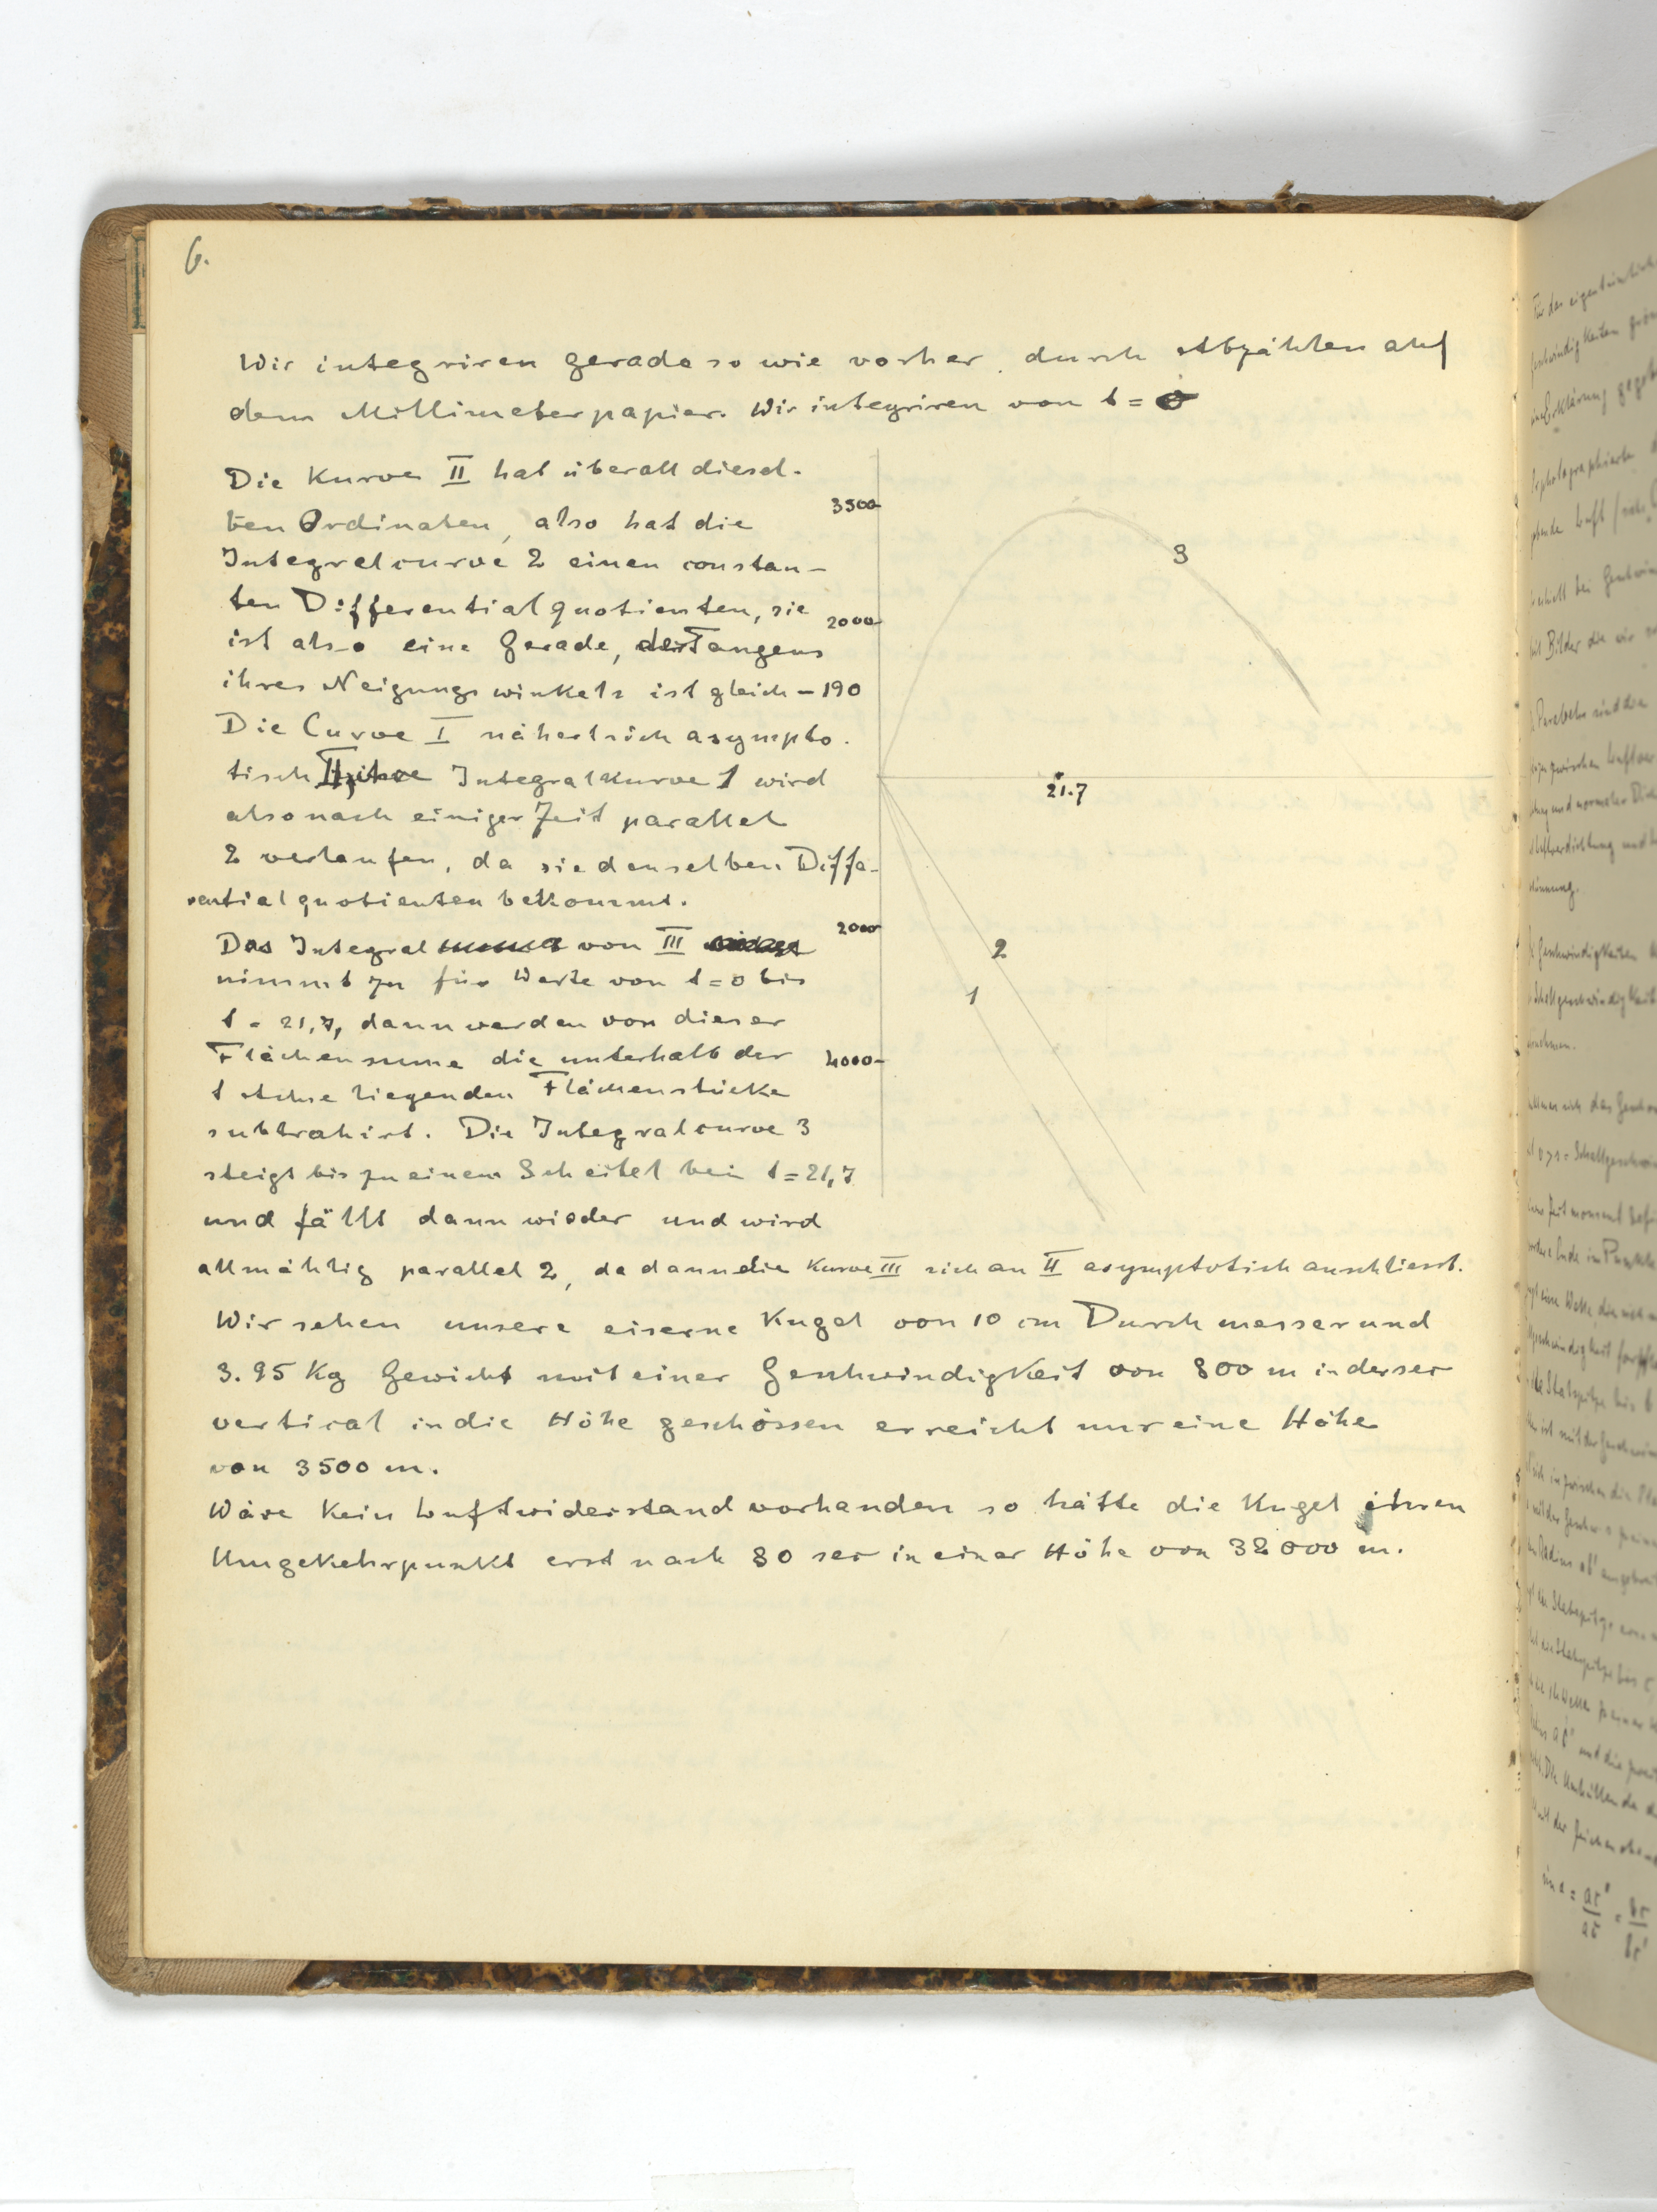 6.
Wir integriren gerade so wie vorher durch Abzählen auf
dem Millimeterpapier. Wir integriren von t = 0
Die Kurve II hat überall diesel-
ben Ordinaten, also hat die
Integralcurve 2 einen constan-
ten Differentialquotienten, sie
ist also eine Gerade, der Tangens
ihres Neigungswinkels ist gleich – 190
Die Curve I nähert sich asympto-
tisch II, ihre Integralkurve 1 wird
also nach einiger Zeit parallel
2 verlaufen, da sie denselben Diffe-
rentialquotienten bekommt.
Das Integral von III
nimmt zu für Werte von t = 0 bis
t = 21,7, dann werden von dieser
Flächensume die unterhalb der
t Achse liegenden Flächenstücke
subtrahirt. Die Integralcurve 3
steigt bis zu einem Scheitel bei t = 21,7
und fällt dann wieder und wird
allmählig parallel 2, da dann die Kurve III sich an II asymptotisch anschliesst.
3500
2000
3
21.7
2000
2
1
4000
Wir sehen unsere eiserne Kugel von 10 cm Durchmesser und
3.95 Kg Gewicht mit einer Geschwindigkeit von 800 m in der sec
vertical in die Höhe geschossen erreicht nur eine Höhe
von 3500 m.
Wäre kein Luftwiderstand vorhanden so hätte die Kugel ihren
Umgekehrpunkt erst nach 80 sec in einer Höhe von 32000 m.